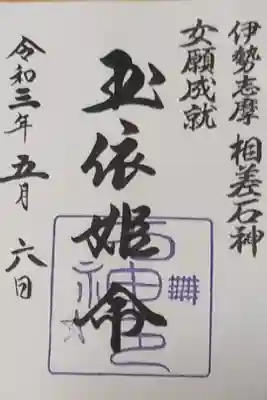 伊勢志摩 相差石神
女願成就
玉依姫命
石神
令和三年五月六日